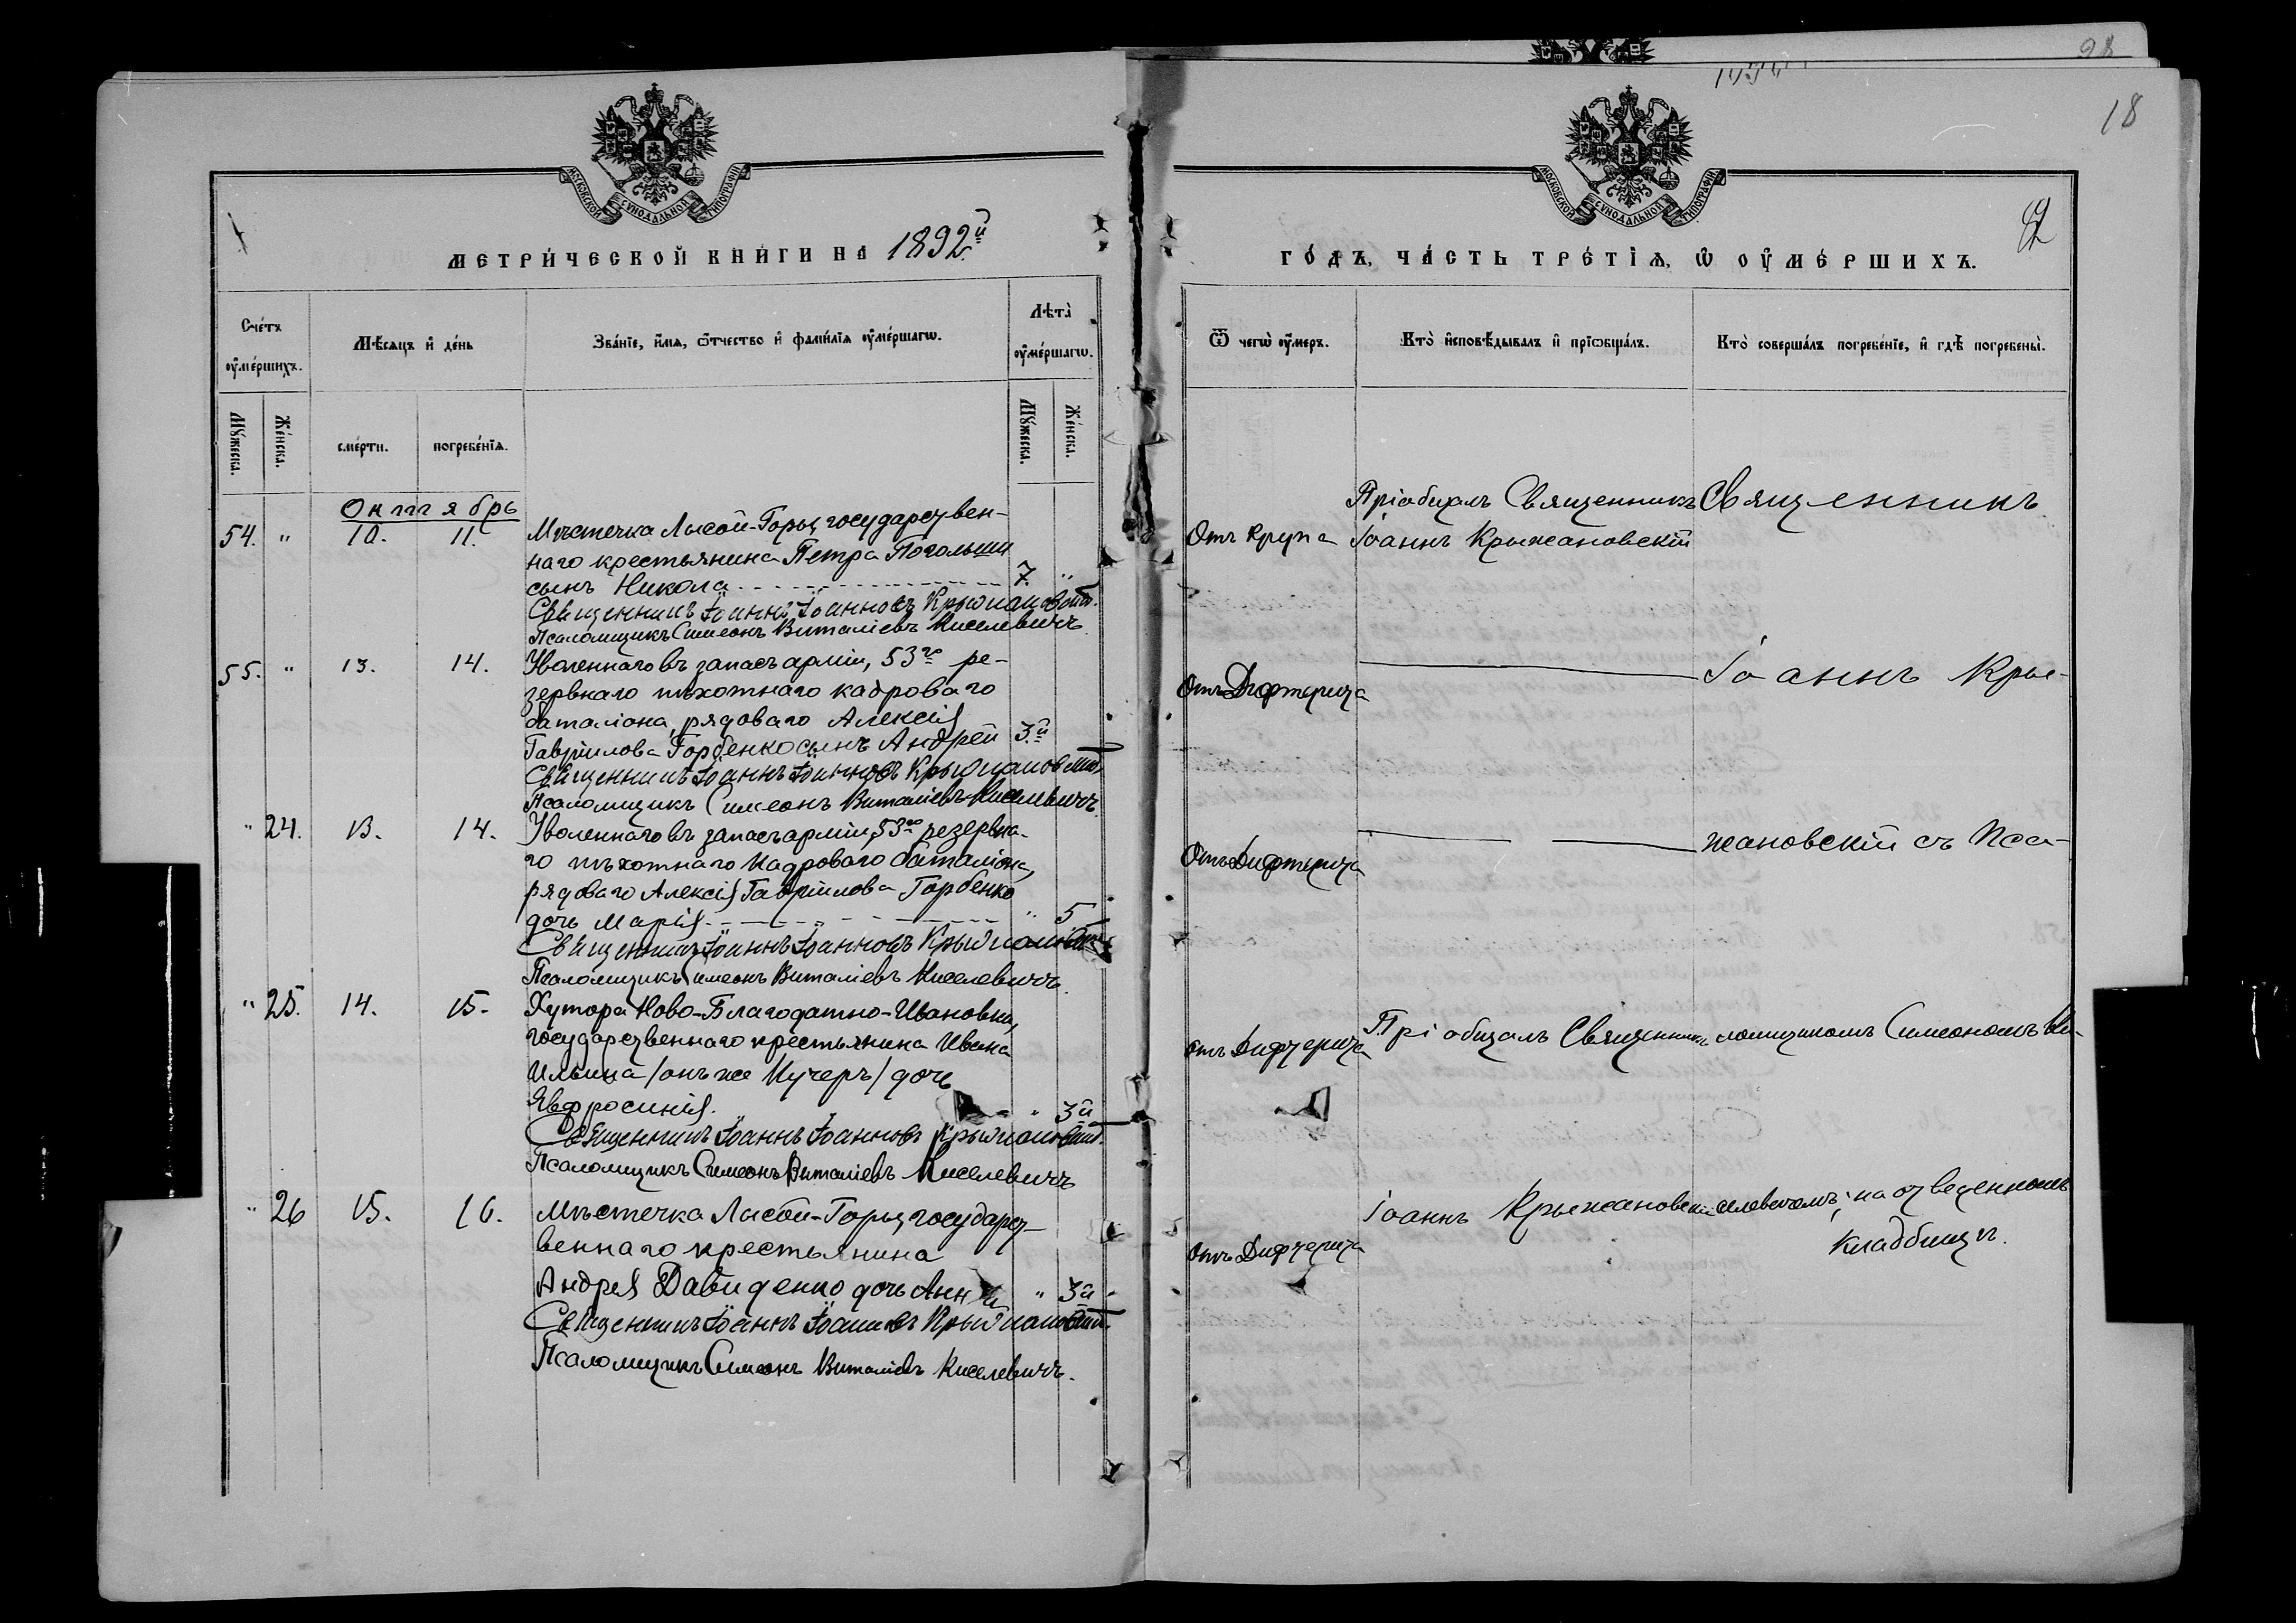 98
18
МОСКОВСКОЙ СУНОДАЛЬНОЙ ТИПОГРАФІИ
МЕТРИ́ЧЕСКОЙ КНИ́ГИ НА 1892й
Сче́тъ ᲂу҆ме́ршихъ.
Мѣ́сяцъ и҆ де́нь
Зва́нїе, и҆́мя, ѻ҆́тчество и҆ фами́лїя ᲂу҆ме́ршагѡ.
Лѣ́та ᲂу҆ме́ршагѡ.
Мꙋ́жеска.
Же́нска.
сме́рти.
погребе́нїя.
Мꙋ́жеска.
Же́нска.
Октябрь
54. " 10. 11. Мѣстечка Лысой-Горы, государствен-
наго крестьянина Петра
сынъ Никола 7. "
Священникъ Іоаннъ Іоанновъ Крыжановскій.
Псаломщикъ Симеонъ Виталіевъ Киселевичъ.
55. " 13. 14. Уволеннаго въ запасъ арміи, 53го ре-
зервнаго пѣхотнаго кадроваго
баталіона, рядоваго Алексія
Гавріилова Горбенко сынъ Андрей 3.й
Священникъ Іоаннъ Іоанновъ Крыжановскій.
Псаломщикъ Симеонъ Виталіевъ Киселевичъ.
" 24. 13. 14. Уволеннаго въ запасъ арміи, 53го резервна-
го пѣхотнаго кадроваго баталіона,
рядоваго Алексія Гаврїилова Горбенко
дочь Марія " 5
Священникъ Іоаннъ Іоанновъ Крыжановскій
Псаломщикъ Симеонъ Виталіевъ Киселевичъ.
" 25. 14. 15. Хутора Ново-Благодатно-Ивановки,
государственнаго крестьянина Ивана
Ильина /онъ же Кучеръ/ дочь
Явфросинія. " 3й
Священникъ Іоаннъ Іоанновъ Крыжановскій.
Псаломщикъ Симеонъ Виталіевъ Киселевичъ
" 26 15. 16. Мѣстечка Лысой-Горы, государст-
веннаго крестьянина
Андрея Давиденко дочь " 3й
Священникъ Іоаннъ Іоанновъ Крыжановскій.
Псаломщикъ Симеонъ Виталіевъ Киселевичъ.
МОСКОВСКОЙ СУНОДАЛЬНОЙ ТИПОГРАФІИ
ГО́ДЪ, ЧА́СТЬ ТРЕ́ТІЯ, Ѡ҆ ОУ҆МЕ́РШИХЪ.
Ѿ чегѡ̀ ᲂу҆́меръ.
Кто̀ и҆сповѣ́дывалъ и҆ прїѡбща́лъ.
Кто̀ соверша́лъ погребе́нїе, и҆ гдѣ̀ погребены̀.
Отъ крупа
Пріобщалъ Священникъ
Іоаннъ Крыжановскій
Священникъ
Отъ Дифтерита
Іоаннъ Кры-
Отъ Дифтерита
жановскій съ Пса-
отъ Дифтерита
Пріобщалъ Священникъ
ломщикомъ Симеономъ Ки-
отъ Дифтерита
Іоаннъ Крыжановскій
селевичемъ, на отведенномъ
кладбищѣ.